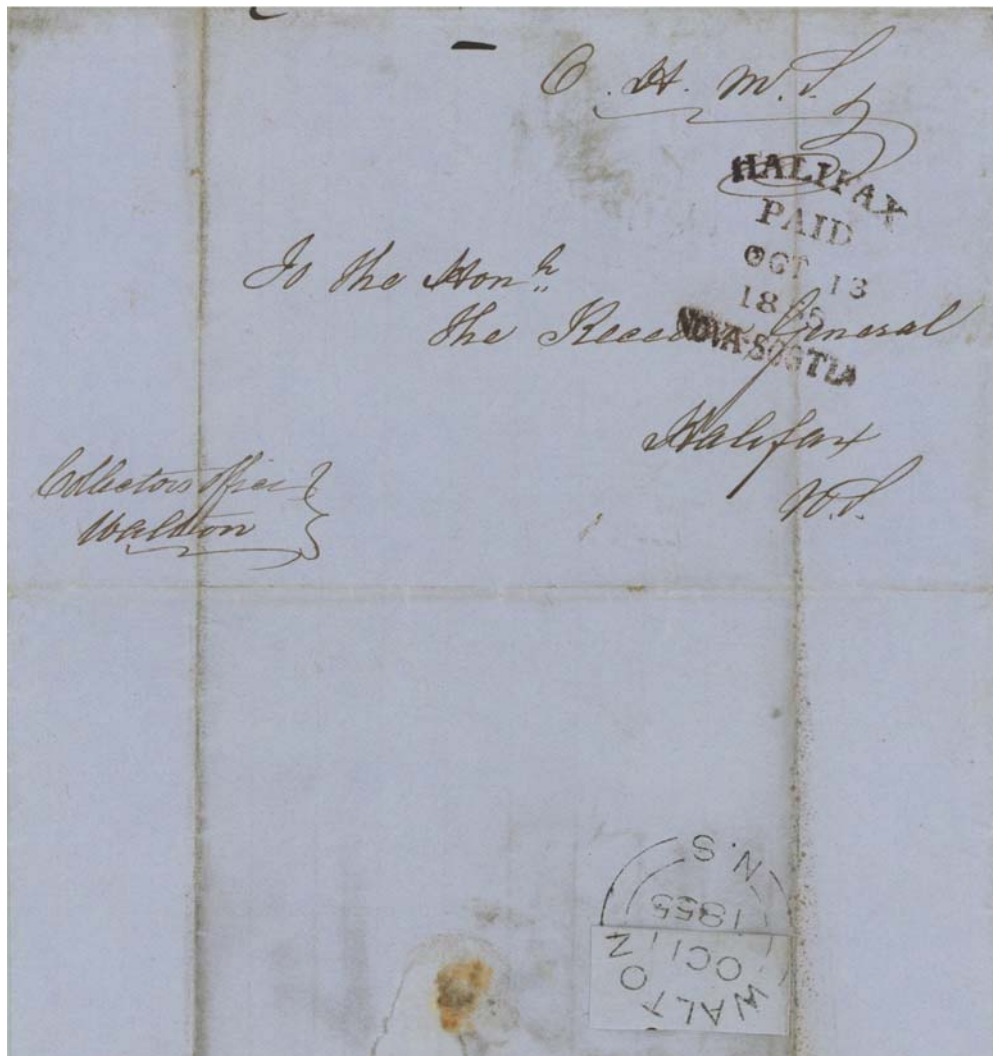 O. H. M. S.
HALIFAX
PAID
OCT 13
1855
NOVA-SCOTIA
To the Honble
The Receiver General
Halifax
N.S.
Collectors office
Walton
WALTON
OCT
1855
N.S